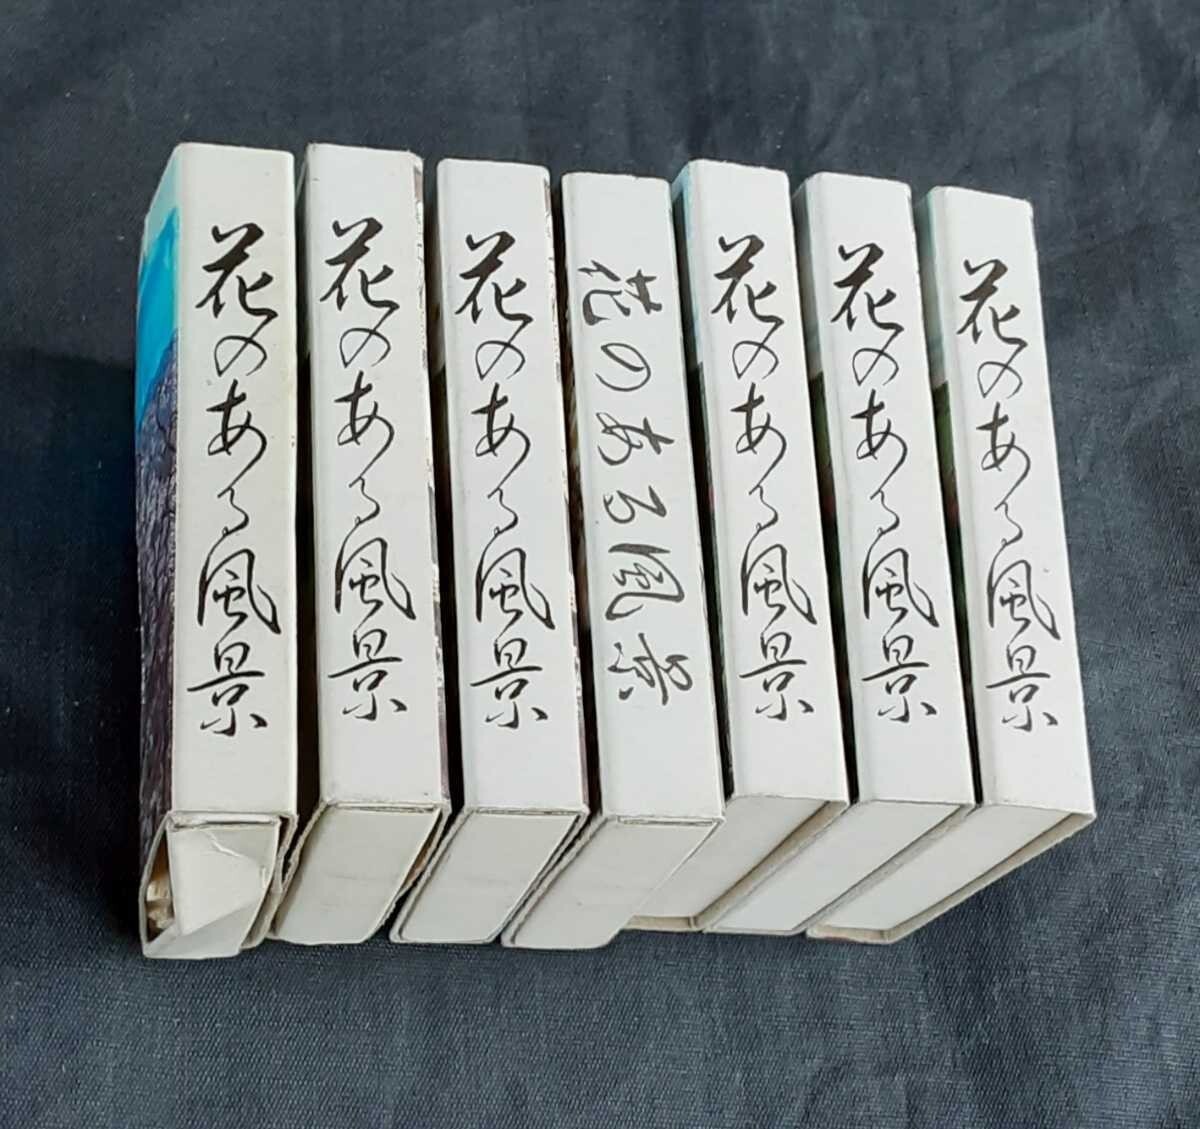 花のある風景
花のある風景
花のある風景
花のある風景
花のある風景
花のある風景
花のある風景